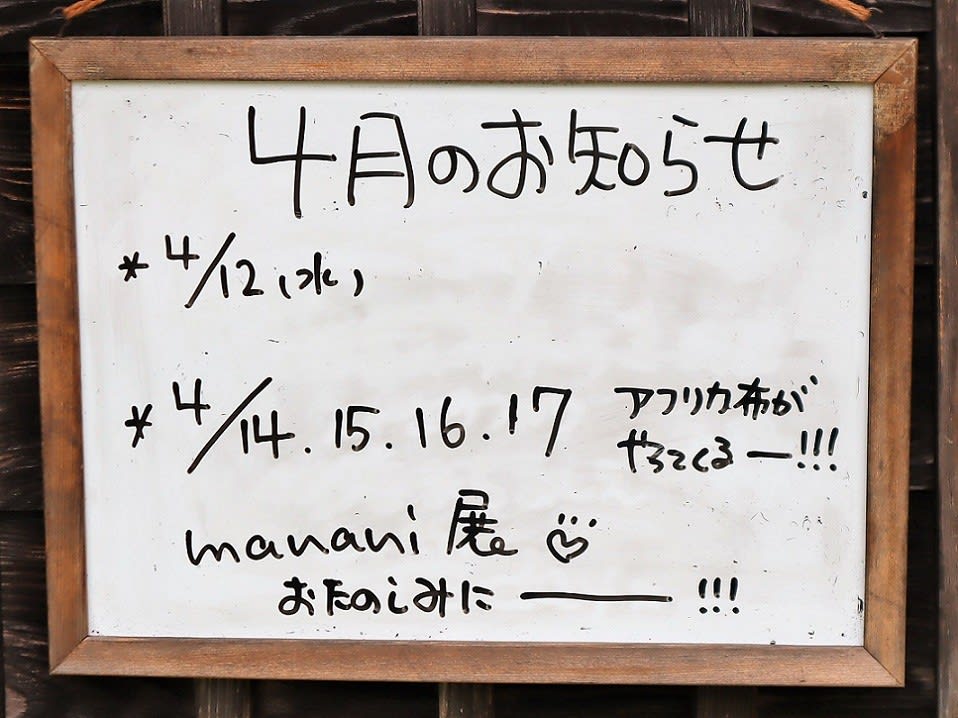 4月のお知らせ
* 4/12(水)
* 4/14.15.16.17 アフリカ布が
やってくるー!!!
manani 展
おたのしみにー!!!